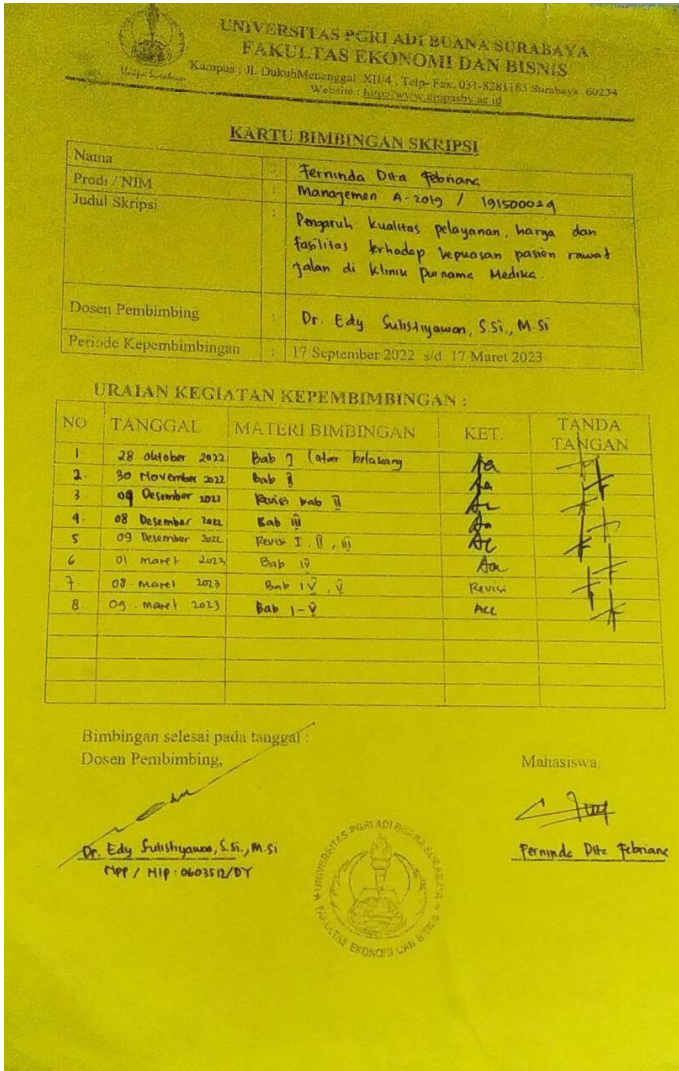 UNIVERSITAS PGRI ADI BUANA SURABAYA
FAKULTAS EKONOMI DAN BISNIS
Kampus : Jl. DukuhMenanggal XII/4 , Telp- Fax. 031-8281183 Surabaya 60234
Website : http://www.unipasby.ac.id
Unipa Surabaya
KARTU BIMBINGAN SKRIPSI
Nama : Ferninda Dita Febriana
Prodi / NIM : Manajemen A-2019 / 191500029
Judul Skripsi : Pengaruh kualitas pelayanan, harga dan
fasilitas terhadap kepuasan pasien rawat
jalan di Klinik Purnama Medika.
Dosen Pembimbing : Dr. Edy Sulistiyawan, S.Si., M.Si
Periode Kepembimbingan : 17 September 2022 s/d 17 Maret 2023
URAIAN KEGIATAN KEPEMBIMBINGAN :
NO TANGGAL MATERI BIMBINGAN KET. TANDA TANGAN
1. 28 Oktober 2022 Bab I Latar belakang
2. 30 November 2022 Bab II
3 Desember 2022 Revisi bab II
4. 08 Desember 2022 Bab III
5 09 Desember 2022 Revisi I, II, III
6 01 maret 2023 Bab IV
7. 08 maret 2023 Bab IV, V Revisi
8. 09 maret 2023 Bab I-V Acc
Bimbingan selesai pada tanggal :
Dosen Pembimbing, Mahasiswa,
Dr. Edy Sulistiyawan, S.Si., M.Si Ferninda Dita Febriana
NPP / NIP : 0603512/DY
UNIVERSITAS PGRI ADI BUANA SURABAYA
FAKULTAS EKONOMI DAN BISNIS